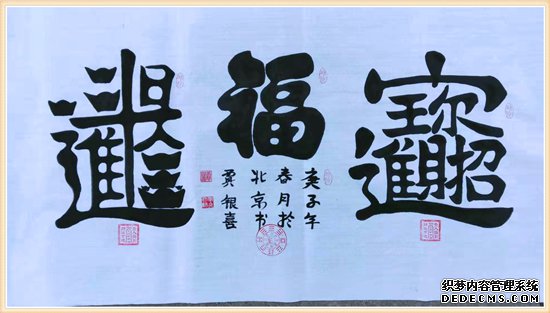 招財進寶
福
日進斗金
庚子年
春月於
北京书
贾根喜
织梦内容管理系统
DEDECMS.COM